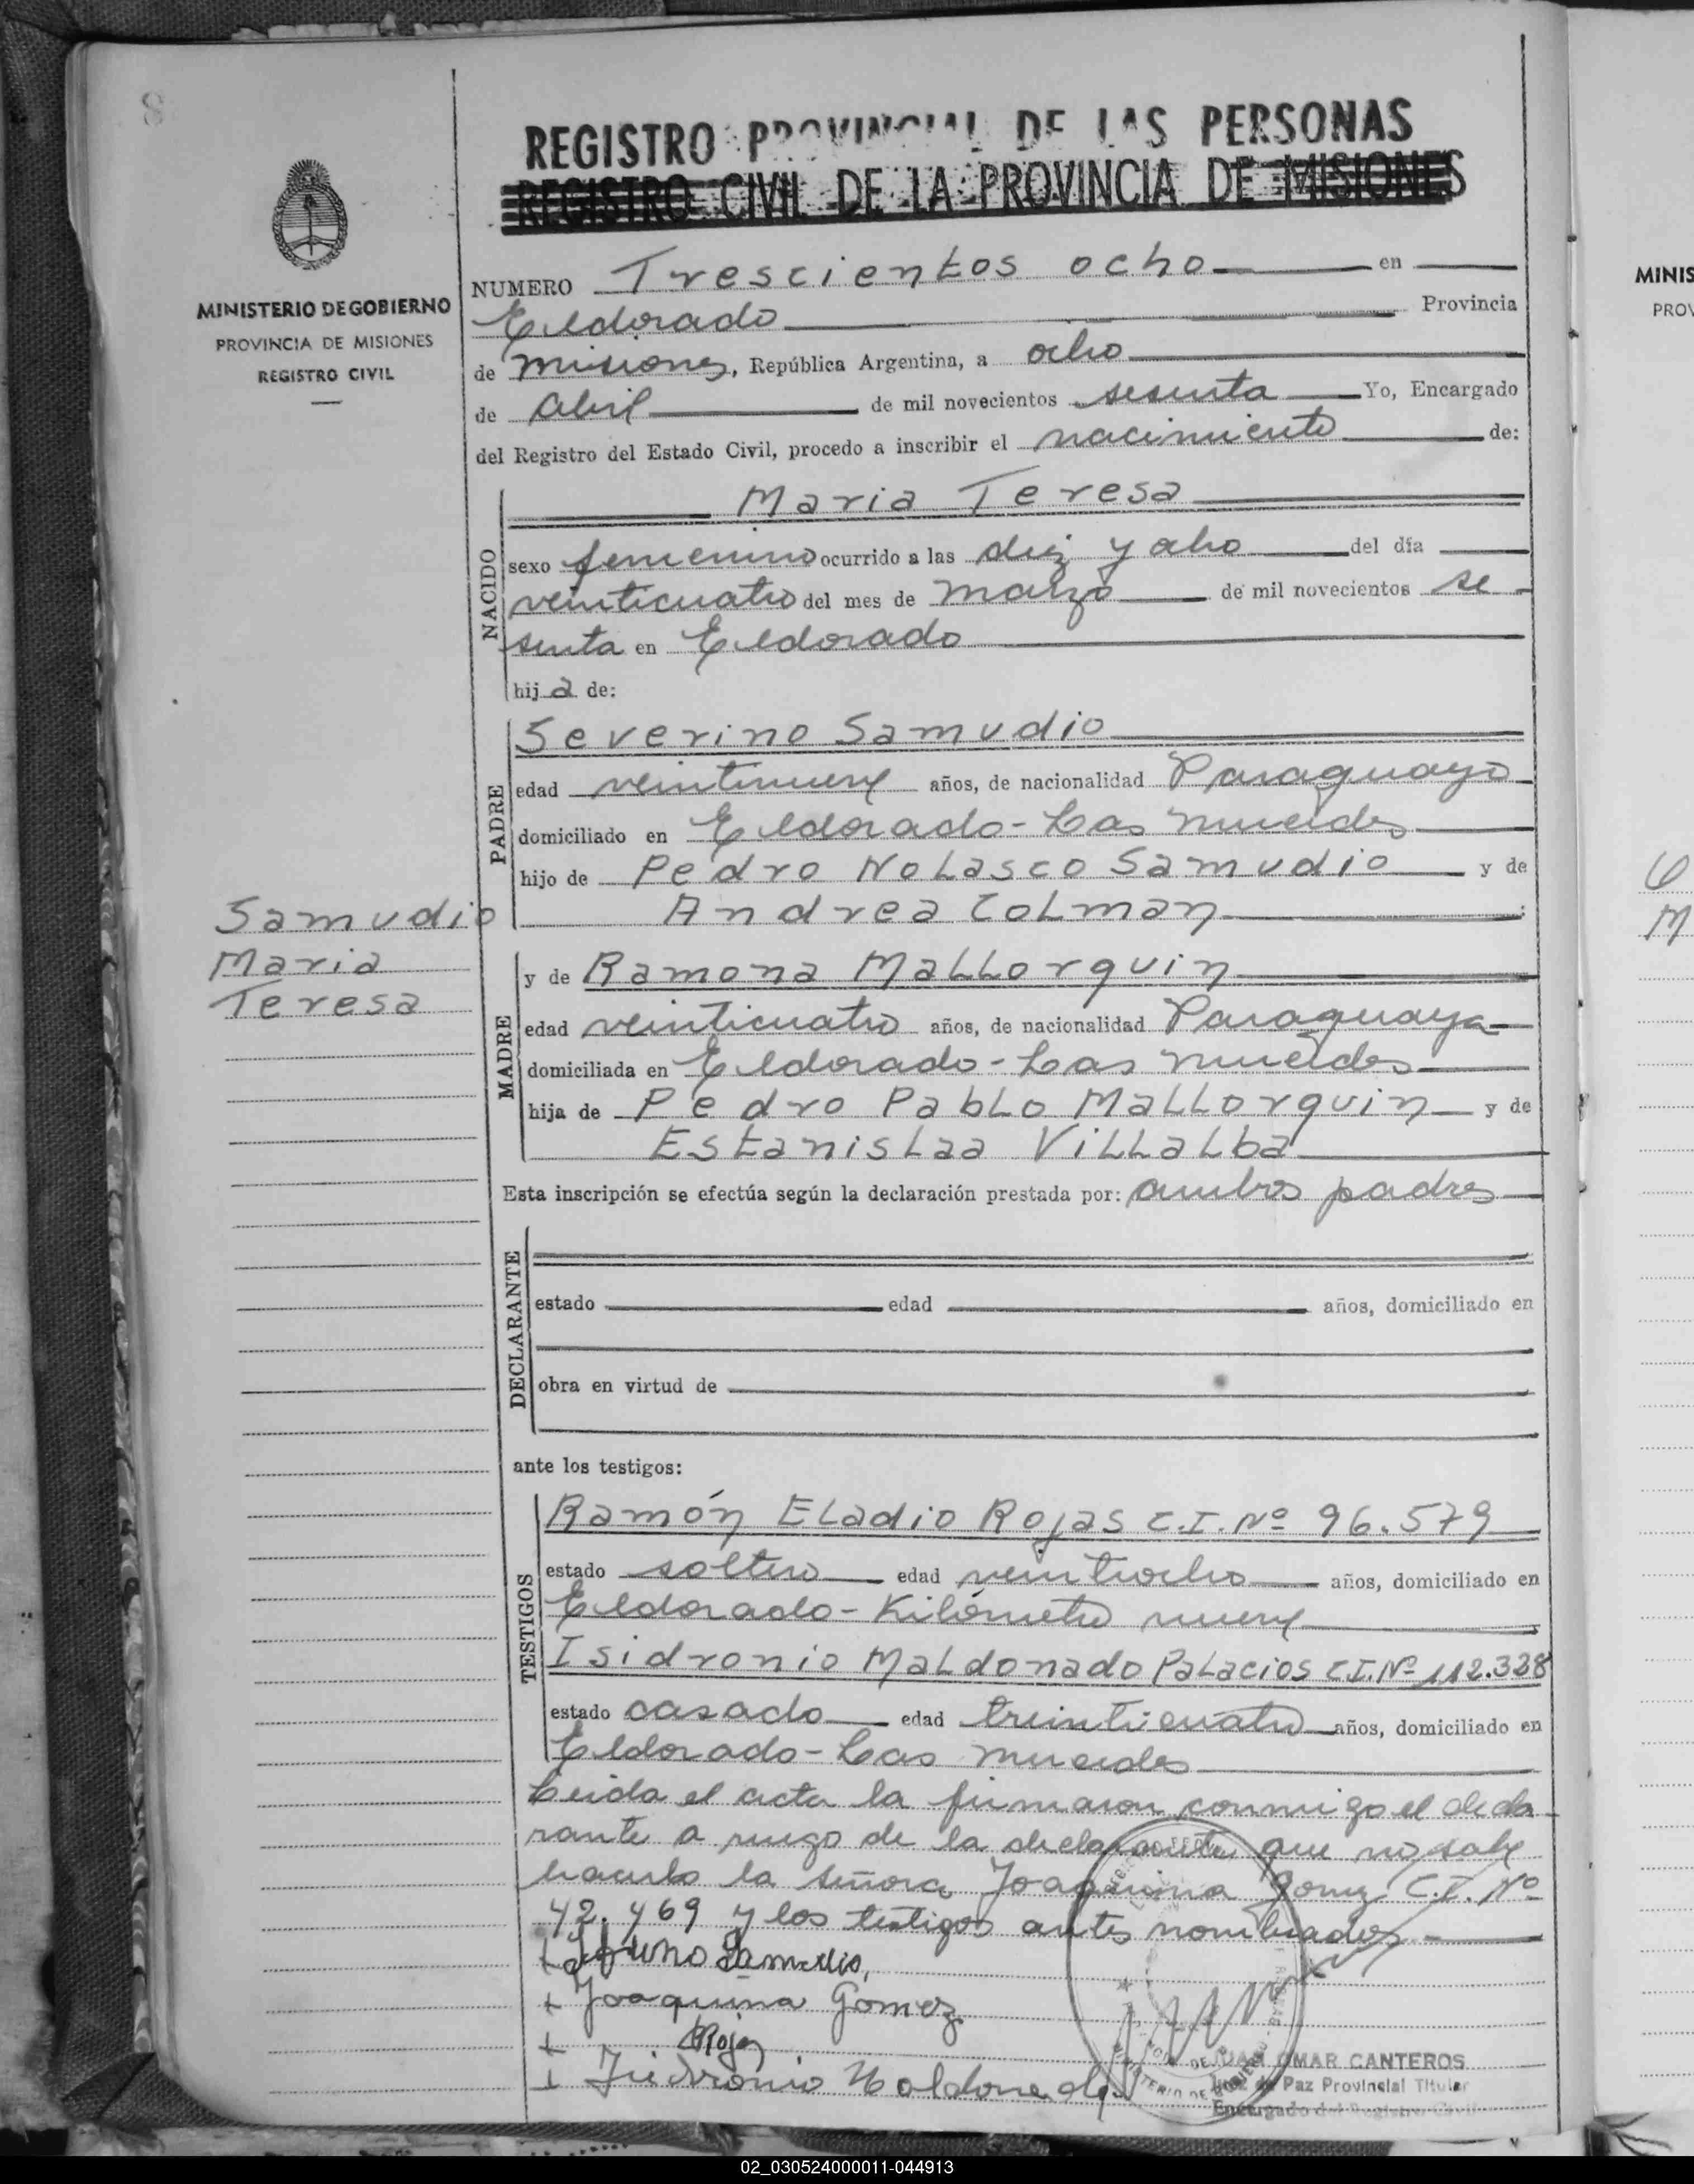 8
REGISTRO PROVINCIAL DE LAS PERSONAS
REGISTRO CIVIL DE LA PROVINCIA DE MISIONES
MINISTERIO DE GOBIERNO
PROVINCIA DE MISIONES
REGISTRO CIVIL
NUMERO Trescientos ocho en
Eldorado Provincia
de misiones, República Argentina, a ocho
de abril de mil novecientos sesenta Yo, Encargado
del Registro del Estado Civil, procedo a inscribir el nacimiento de:
Maria Teresa
NACIDO
sexo femenino ocurrido a las diez y ocho del día
veinticuatro del mes de marzo de mil novecientos se
senta en Eldorado
hija de:
PADRE
Severino Samudio
edad veintinueve años, de nacionalidad Paraguayo
domiciliado en Eldorado - Las
hijo de Pedro Nolasco Samudio y de
Andrea Colman
Samudio
Maria
Teresa
MADRE
y de Ramona Mallorquin
edad veinticuatro años, de nacionalidad Paraguaya
domiciliada en Eldorado - Las
hija de Pedro Pablo Mallorquin y de
Estanislaa Villalba
Esta inscripción se efectúa según la declaración prestada por: ambos padres
DECLARANTE
estado edad años, domiciliado en
obra en virtud de
ante los testigos:
TESTIGOS
Ramón Eladio Rojas C.I. Nº 96.579
estado soltero edad veintiocho años, domiciliado en
Eldorado - Kilómetro nueve
Isidronio Maldonado Palacios C.I. Nº 112.328
estado casado edad treinticuatro años, domiciliado en
Eldorado - Las
Leida el acta la firmaron conmigo el decla
rante a ruego de la declarante que no sabe
hacerlo la señora Joaquina Gomez C.I. Nº
42.469 y los testigos antes nombrados. -
Samudio,
+ Joaquina Gomez
+ Rojas
+ Isidronio Maldonado
JUAN OMAR CANTEROS
Juez de Paz Provincial Titular
Encargado del Registro Civil
MINIS
PROV
M
02_030524000011-044913